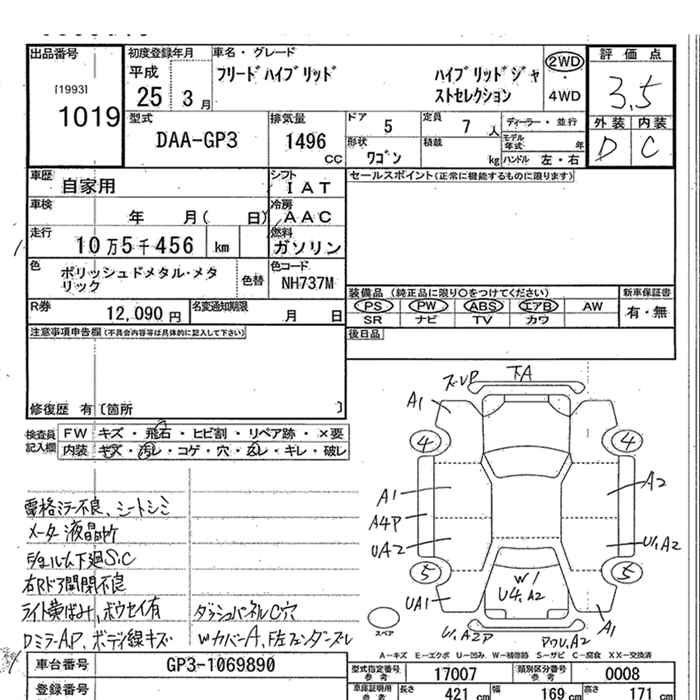 出品番号
[1993]
1019
初度登録年月
平成
25 3月
車名・グレード
フリードハイブリッド ハイブリッドジャ
ストセレクション
2WD
・
4WD
評価点
3.5
外装 内装
D C
型式
DAA-GP3
排気量
1496
CC
ドア 5
定員 7人
ディーラー・並行
モデル年式 年
形状 ワゴン
積載 kg
ハンドル 左・右
車歴 自家用
シフト IAT
セールスポイント(正常に機能するものに限ります)
車検 年 月( 日)
冷房 AAC
走行 10万5千456 km
燃料 ガソリン
色 ポリッシュドメタル・メタ
リック
色替
色コード
NH737M
装備品(純正品に限り○をつけてください)
新車保証書
PS PW ABS エアB AW
SR ナビ TV カワ
有・無
R券 12,090円
名変通知期限
月 日
注意事項申告欄(不具合内容等は具体的に記入して下さい)
後日品
修復歴 有〔箇所 〕
検査員
記入欄
FW キズ・飛石・ヒビ割・リペア跡・×要
内装 キズ・汚レ・コゲ・穴・ムレ・キレ・破レ
電格ミラー不良、シートシミ
メーター液晶ヤケ
下廻S.C
右Rドア開閉不良
ライト黄ばみ、ボウセイ有
ダッシュパネルC穴
DミラーAP、ボディ線キズ
WカバーA、F左フェンダーズレ
ズUP
下A
A1
4
4
A1
A2
A4P
UA2
U1.A2
5
5
W/
U4.A2
UA1
A1
U1.A2P
スペア
A−キズ E−エクボ U−凹み W−補修跡 S−サビ C−腐食 XX−交換済
車台番号 GP3-1069890
型式指定番号
参考
17007
類別区分番号
参考
0008
登録番号
車庫証明用
参考
長さ 421 cm
幅 169 cm
高さ 171 cm